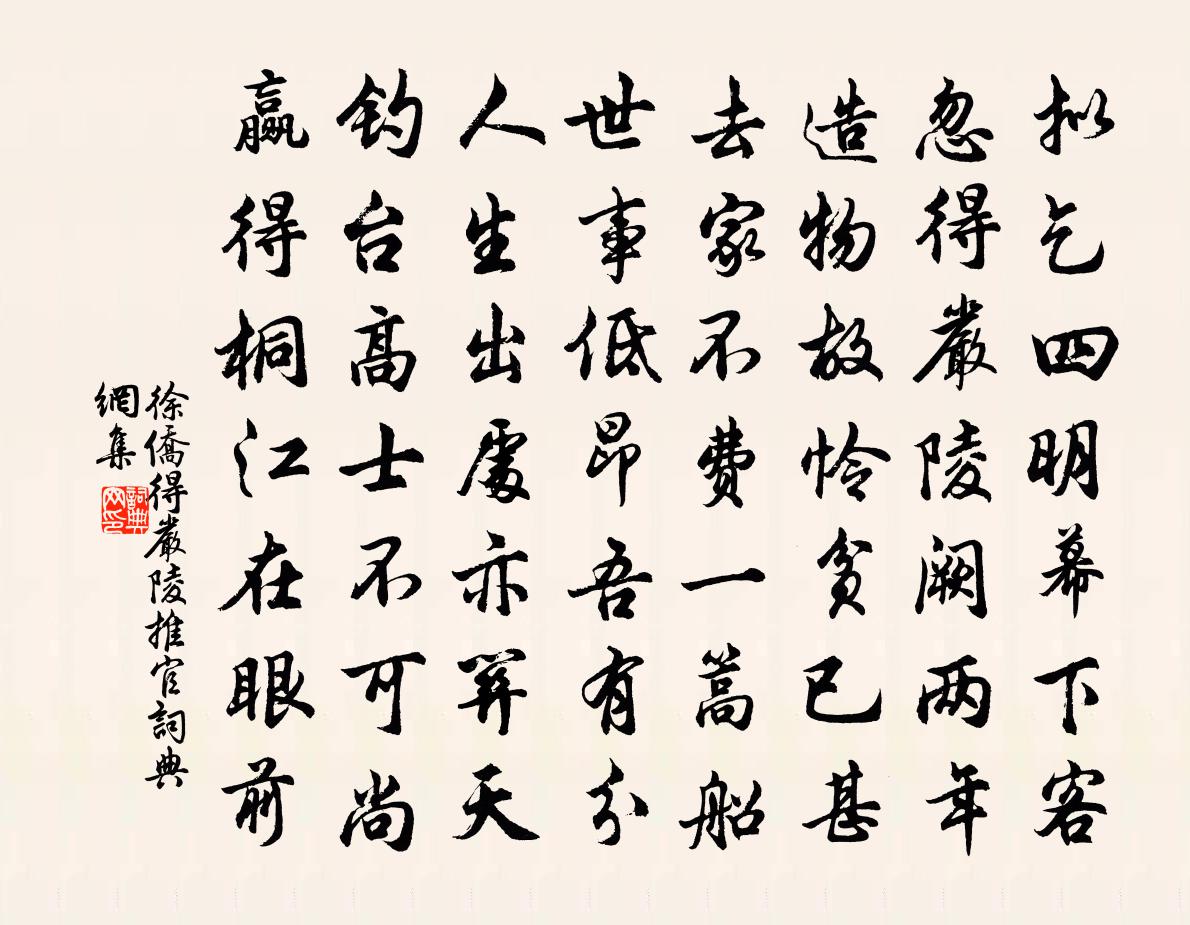 拟乞四明幕下客
忽得嚴陵阙两年
造物故怜贫已甚
去家不费一篙船
世事低昂吾有分
人生出處亦关天
钓台高士不可尚
赢得桐江在眼前
徐僑得嚴陵推官詞典
網集
詞典
网印